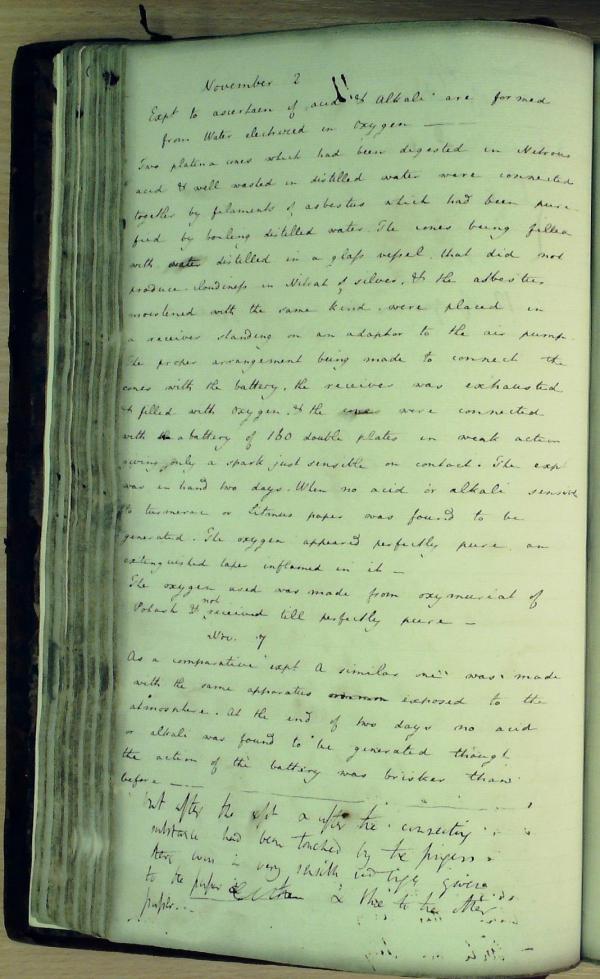 November 2
Expt to ascertain if acid & Alkali are formed
from Water electrised in Oxygen —
Two platina cones which had been digested in Nitrous
acid & well washed in distilled water were connected
together by filaments of asbestus which had been puri
fied by boiling distilled water. The cones being filled
with water distilled in a glass vessel that did not
produce cloudiness in Nitrat of silver, & the asbestus
moistened with the same kind, were placed in
a receiver standing on an adaptor to the air pump.
The proper arrangement being made to connect the
cones with the battery, the receiver was exhausted
& filled with Oxygen, & the cones were connected
with a battery of 160 double plates in weak action
giving only a spark just sensible on contact. The expt
was in hand two days. When no acid or alkali sensible
to turmeric or Litmus paper was found to be
generated. The oxygen appeared perfectly pure an
extinguished taper inflamed in it —
The oxygen used was made from oxymuriat of
Potash & not received till perfectly pure —
Nov. 7
As a comparative expt a similar one was made
with the same apparatus exposed to the
atmosphere. At the end of two days no acid
or alkali was found to be generated though
the action of the battery was brisker than
before —
but after the expt & after the connecting
substance had been touched by the fingers
there was a very sensible red tinge given
to the paper & blue to the other
paper...